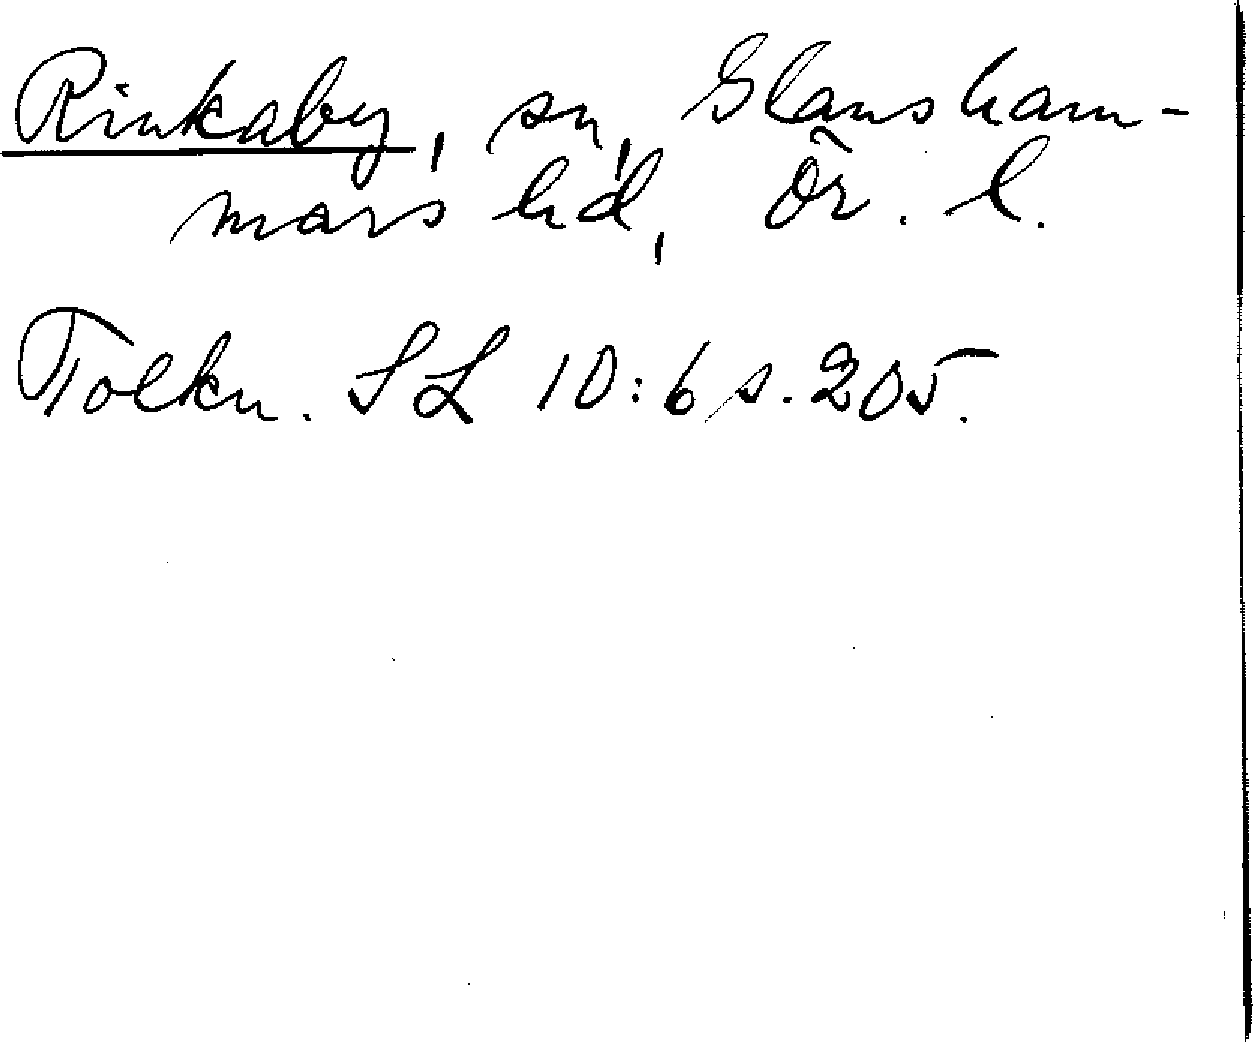 Rinkaby, sn, Glansham-
mars hd, Ör. l.
Tolkn. SL 10:6 s. 205.